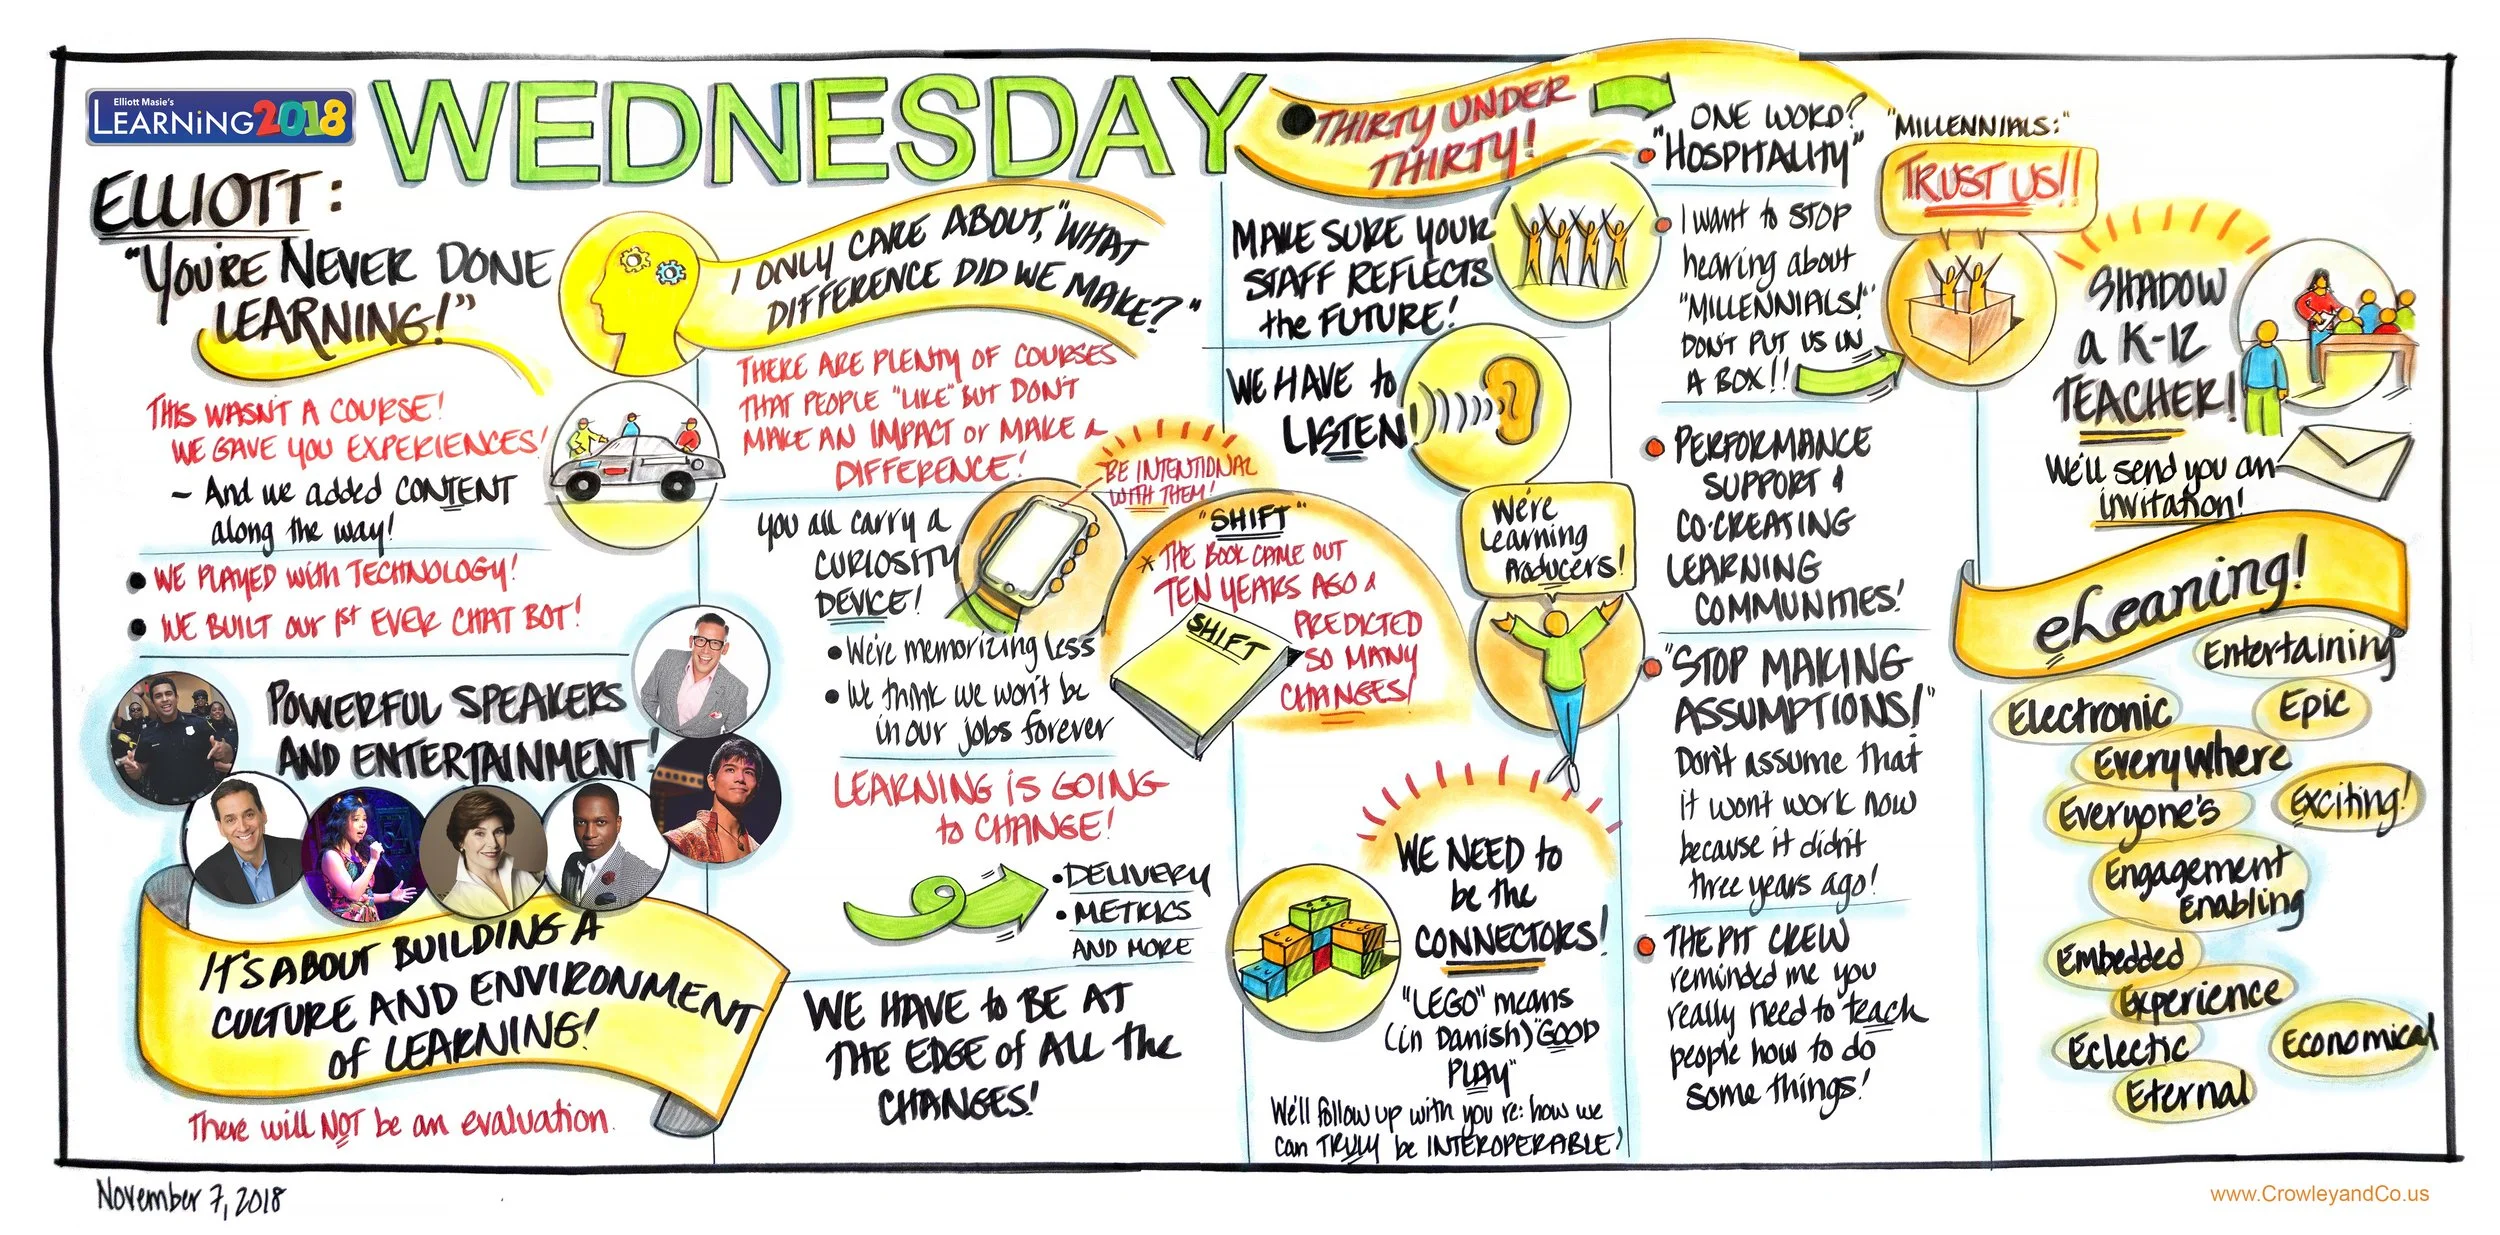 Elliott Masie's
LEARNING2018
WEDNESDAY
ELLIOTT:
"YOU'RE NEVER DONE
LEARNING!"
THIS WASN'T A COURSE!
WE GAVE YOU EXPERIENCES!
- And we added CONTENT
along the way!
• WE PLAYED with TECHNOLOGY!
• WE BUILT our 1st EVER CHAT BOT!
POWERFUL SPEAKERS
AND ENTERTAINMENT!
IT'S ABOUT BUILDING A
CULTURE AND ENVIRONMENT
of LEARNING!
There will NOT be an evaluation.
I ONLY CARE ABOUT, "WHAT
DIFFERENCE DID WE MAKE?"
THERE ARE PLENTY OF COURSES
THAT PEOPLE "LIKE" BUT DON'T
MAKE AN IMPACT or MAKE a
DIFFERENCE!
BE INTENTIONAL
WITH THEM!
you all carry a
CURIOSITY
DEVICE!
• We're memorizing less
• We think we won't be
in our jobs forever
LEARNING is GOING
to CHANGE!
• DELIVERY
• METRICS
AND MORE
WE HAVE to BE AT
THE EDGE of ALL the
CHANGES!
"SHIFT"
* THE BOOK CAME OUT
TEN YEARS AGO &
PREDICTED
SO MANY
CHANGES!
SHIFT
• THIRTY UNDER
THIRTY!
MAKE SURE YOUR
STAFF REFLECTS
the FUTURE!
WE HAVE to
LISTEN!
We're
Learning
Producers!
WE NEED to
be the
CONNECTORS!
"LEGO" means
(in Danish) "GOOD
PLAY"
We'll follow up with you re: how we
can TRULY be INTEROPERABLE!
ONE WORD?
• "HOSPITALITY"
• I want to STOP
hearing about
"MILLENNIALS!"
DON'T PUT US IN
A BOX!!
• PERFORMANCE
SUPPORT &
CO-CREATING
LEARNING
COMMUNITIES!
• "STOP MAKING
ASSUMPTIONS!"
Don't assume that
it won't work now
because it didn't
three years ago!
• THE PIT CREW
reminded me you
really need to teach
people how to do
some things!
"MILLENNIALS:"
TRUST US!!
SHADOW
a K-12
TEACHER!
We'll send you an
invitation!
eLearning!
Entertaining
Electronic
Epic
Everywhere
Everyone's
Exciting!
Engagement
Enabling
Embedded
Experience
Eclectic
Economical
Eternal
November 7, 2018
www.CrowleyandCo.us